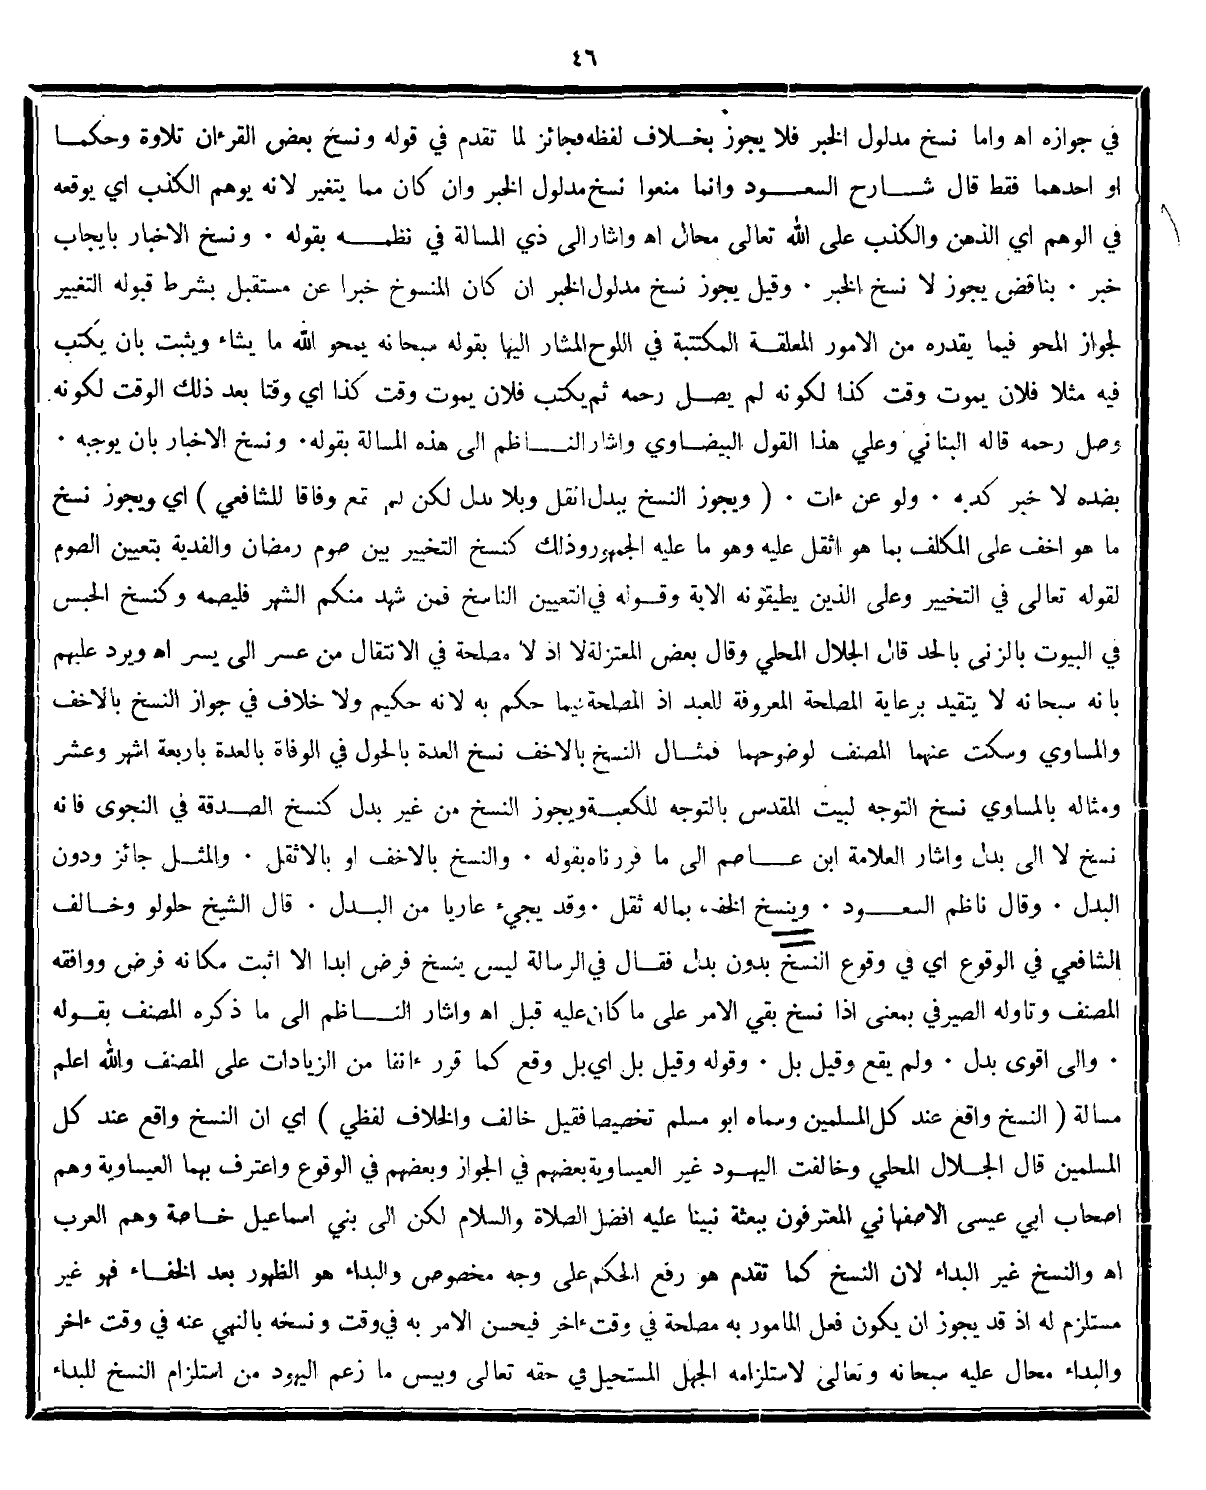 ٤٦
في جوازه اه واما نسخ مدلول الخبر فلا يجوز بخلاف لفظه فجائز لما تقدم في قوله ونسخ بعض القرءان تلاوة وحكما
او احدهما فقط قال شارح السعود وانما منعوا نسخ مدلول الخبر وان كان مما يتغير لانه يوهم الكذب اي يوقعه
في الوهم اي الذهن والكذب على الله تعالى محال اه واشار الى ذي المسالة في نظمه بقوله ٠ ونسخ الاخبار بايجاب
خبر ٠ بناقض يجوز لا نسخ الخبر ٠ وقيل يجوز نسخ مدلول الخبر ان كان المنسوخ خبرا عن مستقبل بشرط قبوله التغيير
لجواز المحو فيما يقدره من الامور المعلقة المكتتبة في اللوح المشار اليها بقوله سبحانه يمحو الله ما يشاء ويثبت بان يكتب
فيه مثلا فلان يموت وقت كذا لكونه لم يصل رحمه ثم يكتب فلان يموت وقت كذا اي وقتا بعد ذلك الوقت لكونه
وصل رحمه قاله البناني وعلي هذا القول البيضاوي واشار الناظم الى هذه المسالة بقوله ٠ ونسخ الاخبار بان يوجبه ٠
بضده لا خبر كذبه ٠ ولو عن ءات ٠ ( ويجوز النسخ ببدل اثقل وبلا بدل لكن لم تمع وفاقا للشافعي ) اي ويجوز نسخ
ما هو اخف على المكلف بما هو اثقل عليه وهو ما عليه الجمهور وذلك كنسخ التخيير بين صوم رمضان والفدية بتعيين الصوم
لقوله تعالى في التخيير وعلى الذين يطيقونه الاية وقوله في التعيين الناسخ فمن شهد منكم الشهر فليصمه وكنسخ الحبس
في البيوت بالزنى بالحد قال الجلال المحلي وقال بعض المعتزلة لا اذ لا مصلحة في الانتقال من عسر الى يسر اه ويرد عليهم
بانه سبحانه لا يتقيد برعاية المصلحة المعروفة للعبد اذ المصلحة فيما حكم به لانه حكيم ولا خلاف في جواز النسخ بالاخف
والمساوي وسكت عنهما المصنف لوضوحهما فمثال النسخ بالاخف نسخ العدة بالحول في الوفاة بالعدة باربعة اشهر وعشر
ومثاله بالمساوي نسخ التوجه لبيت المقدس بالتوجه للكعبة ويجوز النسخ من غير بدل كنسخ الصدقة في النجوى فانه
نسخ لا الى بدل واشار العلامة ابن عاصم الى ما قررناه بقوله ٠ والنسخ بالاخف او بالاثقل ٠ والمثل جائز ودون
البدل ٠ وقال ناظم السعود ٠ وينسخ الخف بماله ثقل ٠ وقد يجيء عاريا من البدل ٠ قال الشيخ حلولو وخالف
الشافعي في الوقوع اي في وقوع النسخ بدون بدل فقال في الرسالة ليس ينسخ فرض ابدا الا اثبت مكانه فرض ووافقه
المصنف وتاوله الصيرفي بمعنى اذا نسخ بقي الامر على ما كان عليه قبل اه واشار الناظم الى ما ذكره المصنف بقوله
٠ والى اقوى بدل ٠ ولم يقع وقيل بل ٠ وقوله وقيل بل اي بل وقع كما قرر ءانفا من الزيادات على المصنف والله اعلم
مسالة ( النسخ واقع عند كل المسلمين وسماه ابو مسلم تخصيصا فقيل خالف والخلاف لفظي ) اي ان النسخ واقع عند كل
المسلمين قال الجلال المحلي وخالفت اليهود غير العيساوية بعضهم في الجواز وبعضهم في الوقوع واعترف بهما العيساوية وهم
اصحاب ابي عيسى الاصفهاني المعترفون ببعثة نبينا عليه افضل الصلاة والسلام لكن الى بني اسماعيل خاصة وهم العرب
اه والنسخ غير البداء لان النسخ كما تقدم هو رفع الحكم على وجه مخصوص والبداء هو الظهور بعد الخفاء فهو غير
مستلزم له اذ قد يجوز ان يكون فعل المامور به مصلحة في وقت ءاخر فيحسن الامر به في وقت ونسخه بالنهي عنه في وقت ءاخر
والبداء محال عليه سبحانه وتعالى لاستلزامه الجهل المستحيل في حقه تعالى وبيس ما زعم اليهود من استلزام النسخ للبداء